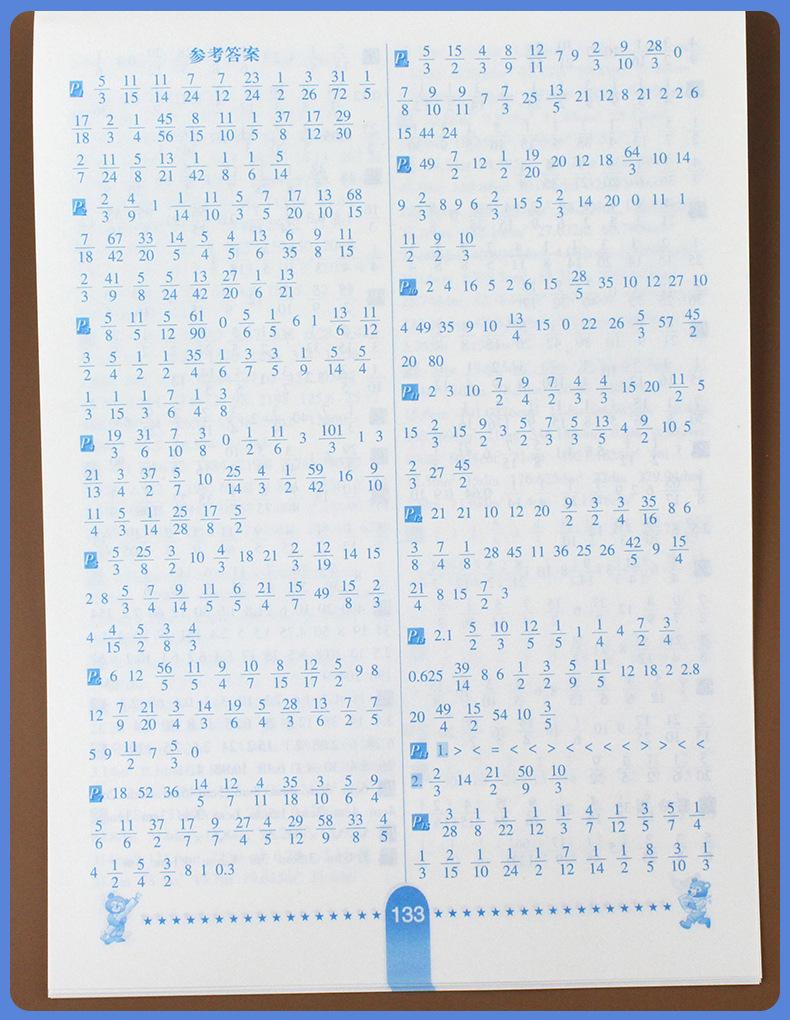 参考答案
P1 5/3 11/15 11/14 7/24 7/12 23/24 1/2 3/26 31/72 1/5
17/18 2/3 1/4 45/56 8/15 11/10 1/5 37/8 17/12 29/30
2/7 11/24 5/8 13/21 1/42 1/8 1/6 5/14
P2 2/3 4/9 1 1/14 11/10 5/3 7/5 17/20 13/10 68/15
7/18 67/42 33/20 14/5 5/4 4/5 13/6 6/35 9/8 11/15
2/3 41/9 5/8 5/24 13/42 27/20 1/6 13/21
P3 5/8 11/5 5/12 61/90 0 5/6 1/5 6 1 13/6 11/12
3/2 5/4 1/2 1/4 35/6 1/7 3/5 3/1 1/9 5/14 5/4
1/3 1/15 1/3 7/6 1/4 3/8
P4 19/3 31/6 7/10 3/8 0 1/2 11/6 3 101/3 1 3
21/13 3/4 37/2 5/7 10 25/14 4/3 1/2 59/42 16 9/10
11/4 5/3 13/14 25/28 17/8 5/2
P5 5/3 25/8 3/2 10 4/3 18 21 2/3 12/19 14 15
2 8 5/4 7/9 4/14 11/5 5/6 21/4 15/7 49 15/8 2/3
4 4/15 5/2 3/8 4/3
P6 6 12 56/5 11/5 9/4 10/7 8/15 12/17 5/2 9 8
12 7/9 21/20 3/4 14/3 19/6 5/4 28/3 13/6 7/2 7/5
5 9 11/2 7 5/3 0
P7 18 52 36 14/5 12/7 4/11 35/18 3/10 5/6 9/4
5/6 11/6 37/2 17/7 9/7 27/4 4/5 29/12 58/9 33/8 4/5
4 1/2 5/4 5/2 8 1 0.3
P8 5/3 15/2 4/3 8/9 12/11 7 9 2/3 9/10 28/3 0
7/8 9/10 9/11 7 7/3 25 13/5 21 12 8 21 2 2 6
15 44 24
P9 49 7/2 12 1/2 19/20 20 12 18 64/3 10 14
9 2/3 8 9 6 2/3 15 5 2/3 14 20 0 11 1
11/2 9/2 10/3
P10 2 4 16 5 2 6 15 28/5 35 10 12 27 10
4 49 35 9 10 13/4 15 0 22 26 5/3 57 45/2
20 80
P11 2 3 10 7/2 9/4 7/2 4/3 4/3 15 20 11/2 5
15 2/3 15 9/2 3 5/2 7/3 5/3 13/5 4 9/2 10 5
2/3 27 45/2
P12 21 21 10 12 20 9/2 3/2 3/4 35/16 8 6
3/8 7/4 1/8 28 45 11 36 25 26 42/5 9 15/4
21/4 8 15 7/2 3
P13 2.1 5/2 10/3 12/5 1/5 1 1/4 4 7/2 3/4
0.625 39/14 8 6 1/2 3/2 5/9 11/5 12 18 2 2.8
20 49/4 15/2 54 10 3/5
P14 1. > < = < < > < < < < > < <
2. 2/3 14 21/2 50/9 10/3
P15 3/28 1/8 1/22 1/12 1/3 4/7 1/12 3/5 5/7 1/4
1/3 2/15 1/10 1/24 1/2 7/12 1/14 1/2 8/5 3/10 1/3
133